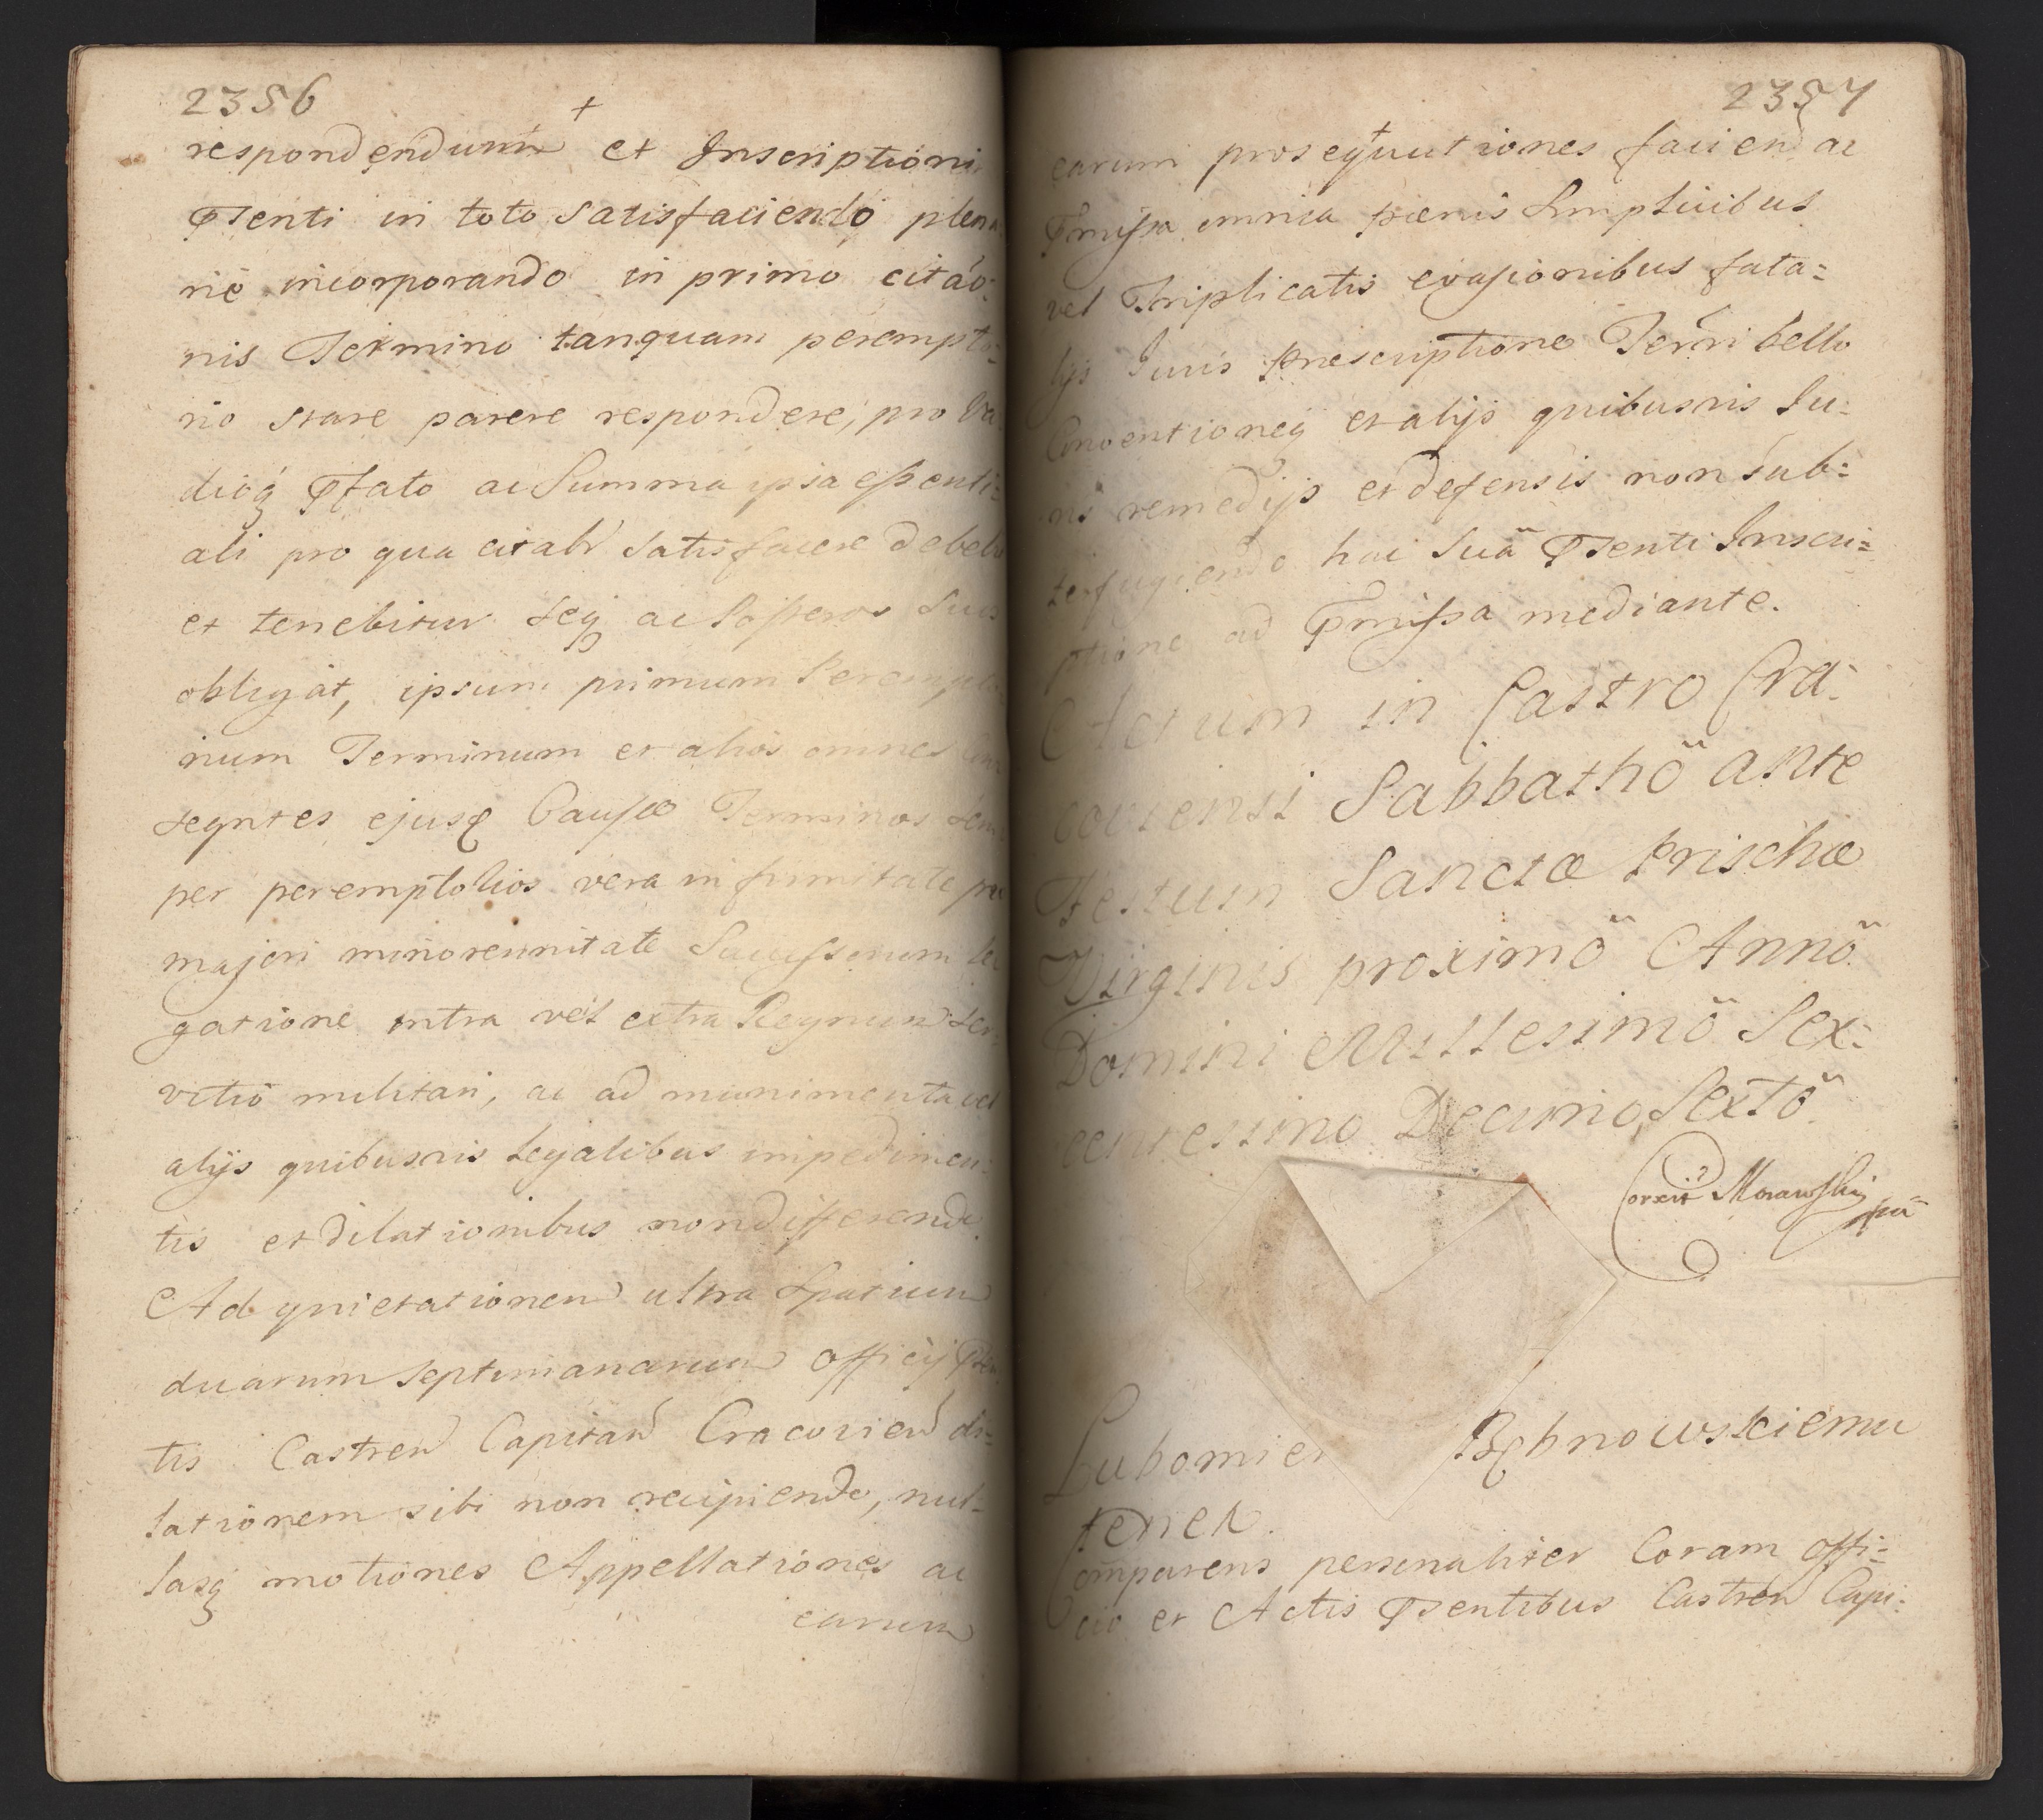 2356
+
respondendum et Inscriptioni
Psenti in toto satisfaciendo plena
rie incorporando in primo citão:
nis Termino tanquam perempto:
rio stare parere respondere, pro Va
dioq Pfato ac Summa ipsa essenti=
ali pro qua citabr satisfacere debebit
et tenebitur seq ac Posteros Suos
obligat, ipsum primum Perempto
rium Terminum et alios omnes Con
seqntes ejusq Causæ Terminos sem
per peremptorios vera infirmitate pro
majori minorennitate Successorum Le
gatione intra vel extra Regnum ser:
vitio militari, ac ad munimenta vel
alijs quibusvis legalibus impedimen:
tis et dilationibus non differendo.
Ad quietationem ultra Spatium
duarum Septimanarum Officij Psen
tis Castren Capitan Cracovien di=
lationem sibi non recipiendo, nul=
lasq motiones Appellationes ac
earum
2357
earum prosequutiones faciend ac
Pmissa omnia pœnis Simplicibus
vel Triplicatis evasionibus fata=
lijs Juris Præscriptione Terri bello
Conventioneq et alijs quibusvis Ju:
ris remedijs et defensis non sub=
terfugiendo hac Suã Psenti Inscri=
ptione ad Pmissa mediante.
Actum in Castro Cra:
coviensi Sabbathõ ante
Festum Sanctæ Prischæ
Virginis proximõ Annõ
Domini Millesimõ Sex:
centesimo Decimo Sextõ.
Correxit Morawskij
mpa
Lubomier Rębnowskiemu
tenet.
Comparens personaliter Coram offi=
cio et Actis Psentibus Castren Capi: